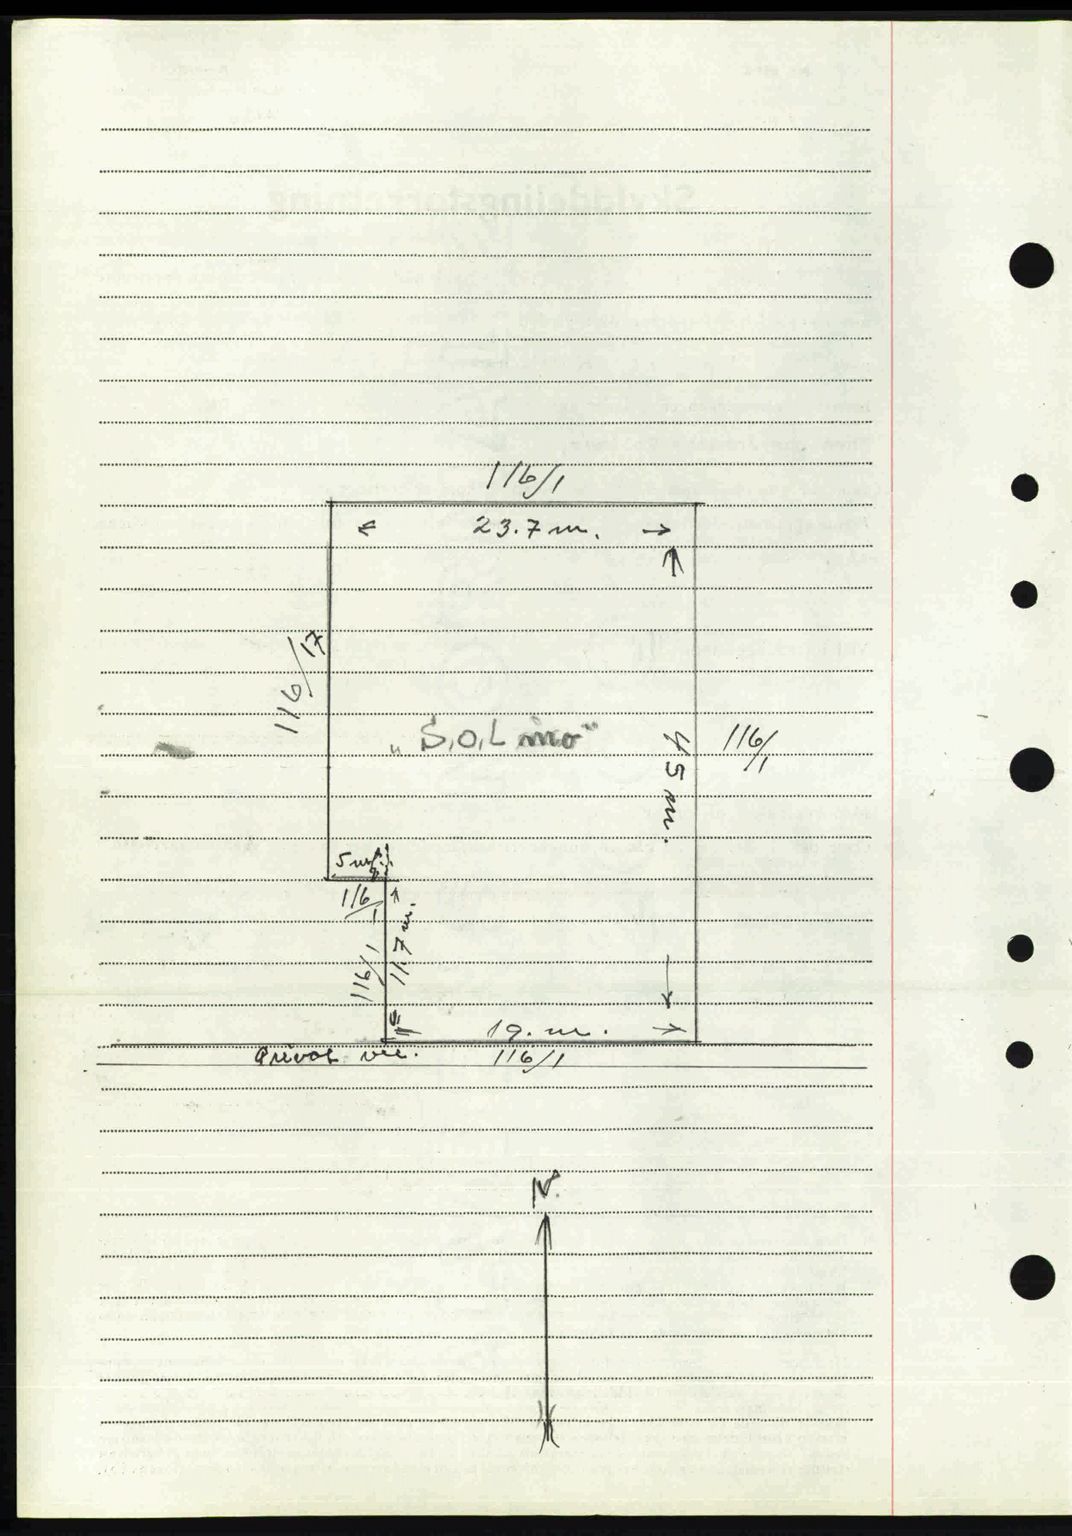 116/1
23.7 m.
116/17
45 m.
116/1
5 m
116/1
116/1
11.7 m.
19. m.
Privat vei.
116/1
N.